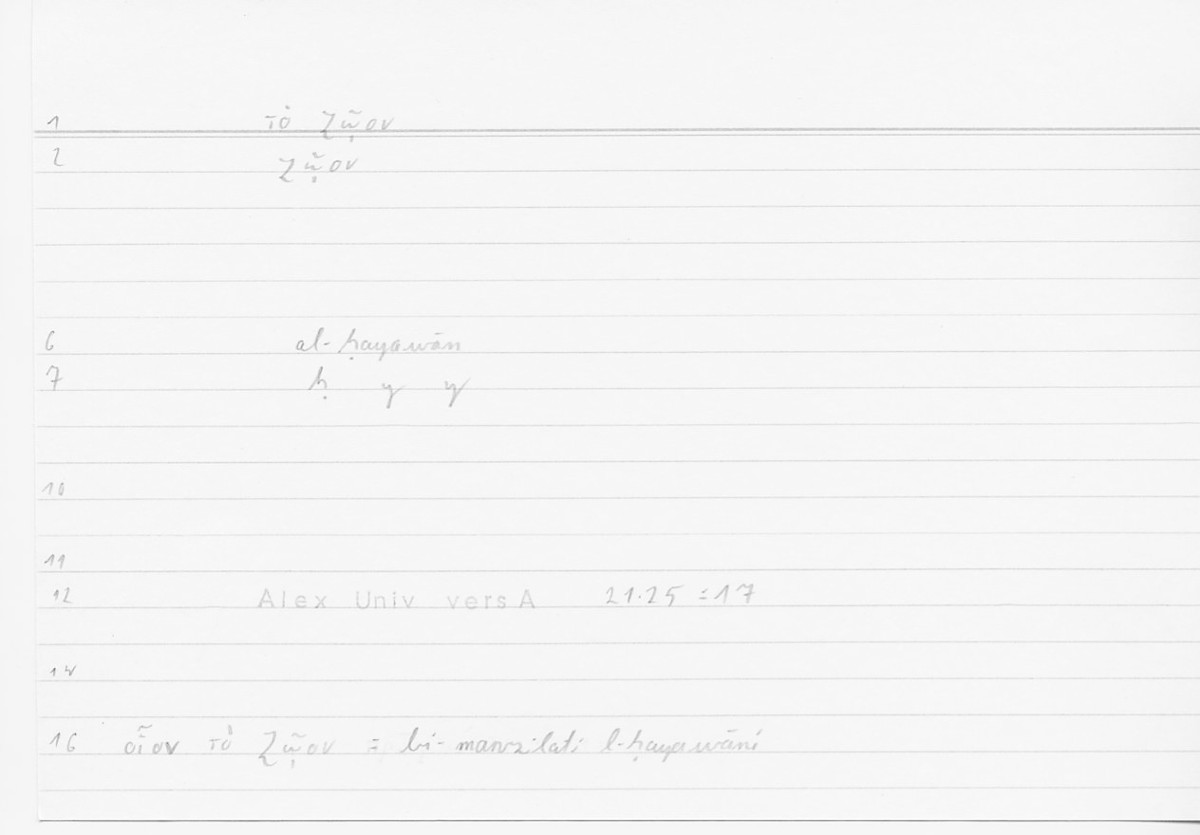 1 τὸ ζῷον
2 ζῷον
6 al-ḥayawān
7 ḥ y y
10
11
12 Alex Univ vers A 21.25 = 17
14
16 οἷον τὸ ζῷον = bi-manzilati l-ḥayawāni